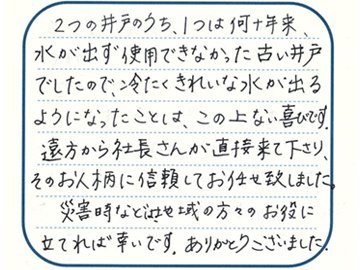 2つの井戸のうち、1つは何十年来、
水が出ず使用できなかった古い井戸
でしたので、冷たくきれいな水が出る
ようになったことは、この上ない喜びです。
遠方から社長さんが直接来て下さり、
そのお人柄に信頼してお任せ致しました。
災害時など地域の方々のお役に
立てれば幸いです。ありがとうございました。